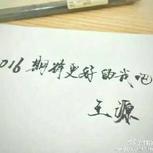 2016期待更好的我吧
王源